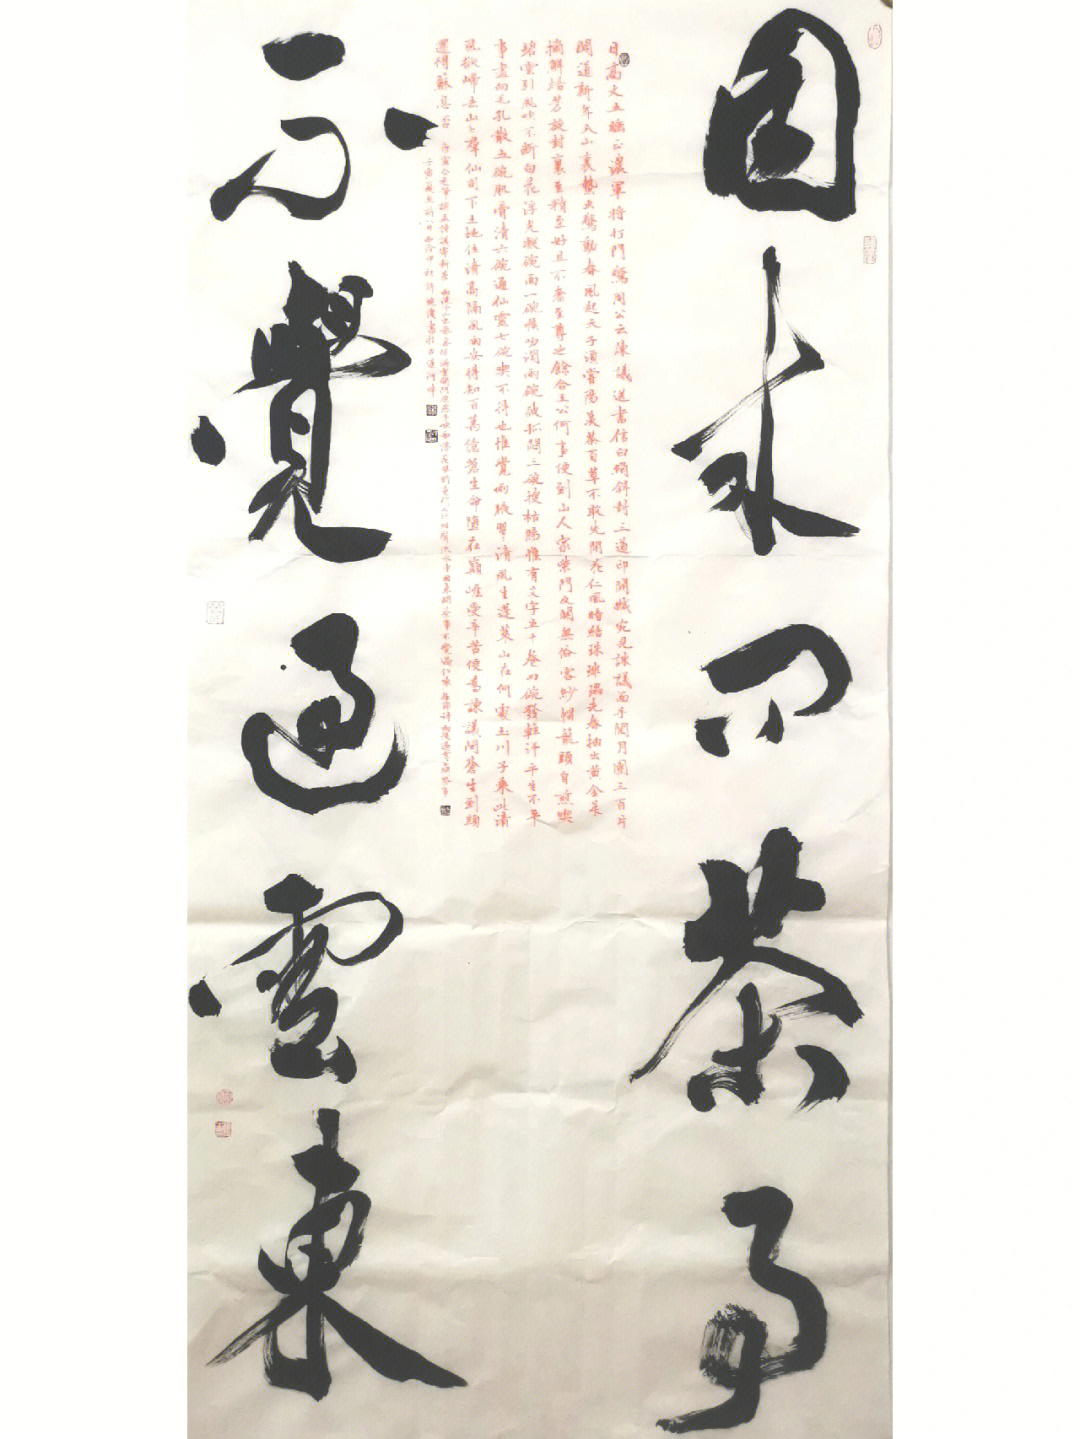 因来問茶事
不覺過雲東
日高丈五睡正濃軍將打門驚周公云諫議送書信白絹斜封三道印開緘宛見諫議面手閱月團三百片
聞道新年入山裏蟄虫驚動春風起天子須嘗陽羨茶百草不敢先開花仁風暗結珠琲瓃先春抽出黄金芽
摘鮮焙芳旋封裹至精至好且不奢至尊之餘合王公何事便到山人家柴門反關無俗客紗帽籠頭自煎喫
碧雲引風吹不斷白花浮光凝碗面一碗喉吻潤兩碗破孤悶三碗搜枯腸惟有文字五千卷四碗發輕汗平生不平
事盡向毛孔散五碗肌骨清六碗通仙靈七碗喫不得也惟覺兩腋習々清風生蓬萊山在何處玉川子乘此清
風欲歸去山上羣仙司下土地位清高隔風雨安得知百萬億蒼生命墮在巔崖受辛苦便為諫議問蒼生到頭
還得蘇息否